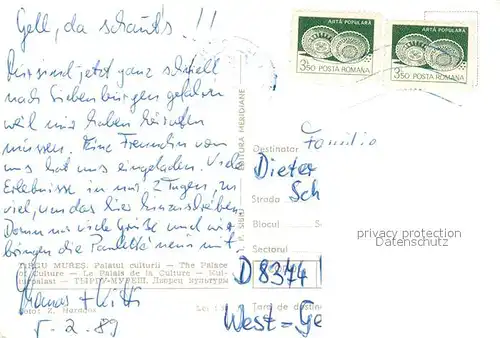 Gell, da schaut's !!
Wir sind jetzt ganz schnell
nach Siebenbürgen gefahren
weil wir haben heiraten
müssen. Eine Freundin von
uns hat uns eingeladen. Viele
Erlebnisse in nur 2 Tagen, zu
viel, um das hier hinzuschreiben.
Dann nur viele Grüße und wir
bringen die Palette neue mit
TÎRGU MUREŞ. Palatul culturii — The Palace
of Culture — Le Palais de la Culture — Kul-
turpalast — ТЫРГУ-МУРЕШ. Дворец культуры
Thomas + Kitti
Foto: Z. Marosna
Lei 1
5.2.89
I. P. Sibiu
EDITURA MERIDIANE
ARTĂ POPULARĂ
3,50 POSTA ROMANA
ARTĂ POPULARĂ
3,50 POSTA ROMANA
Destinatar
Familie
Dieter
Strada
Sch
Blocul
S
Sectorul
D 8344
Țara de destina
West-Ge
privacy protection
Datenschutz